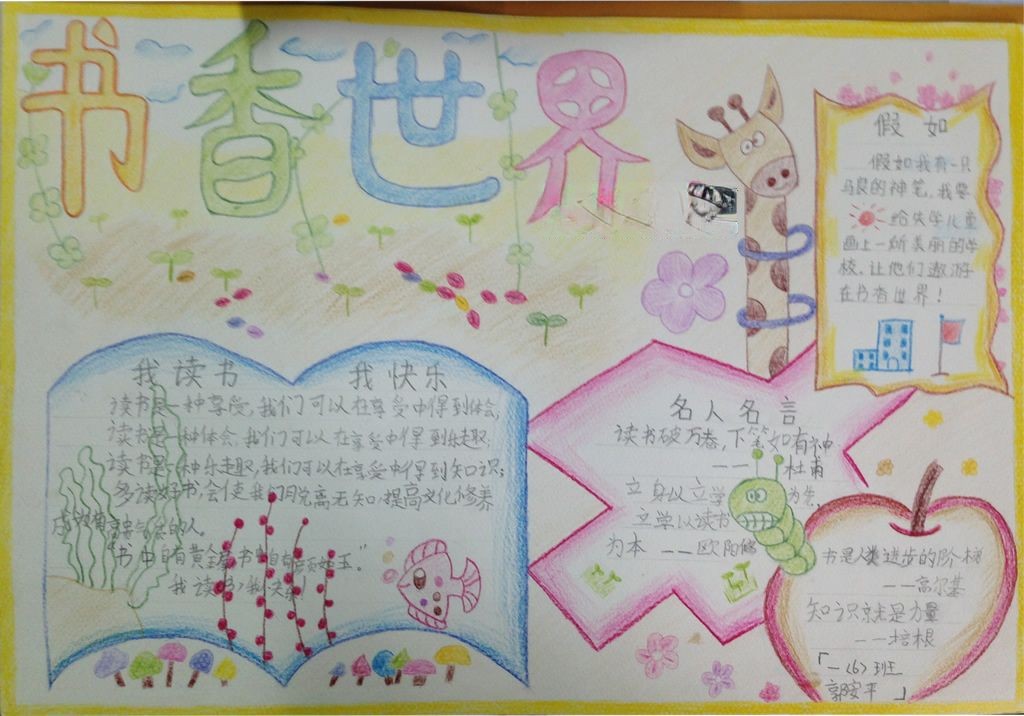 书香世界
假如
假如我有一只
马良的神笔，我要
给失学儿童
画上一所美丽的学
校，让他们遨游
在书香世界！
我读书 我快乐
读书是一种享受，我们可以在享受中得到体会；
读书是一种体会，我们可以在享受中得到乐趣；
读书是一种乐趣，我们可以在享受中得到知识；
多读好书，会使我们脱离无知，提高文化修养
的人。
"书中自有黄金屋，书中自有颜如玉。"
我读书，我快乐！
名人名言
读书破万卷，下笔如有神
——杜甫
立身以立学为先，
立学以读书
为本 ——欧阳修
书是人类进步的阶梯
——高尔基
知识就是力量
——培根
「一（6）班
郭安平」